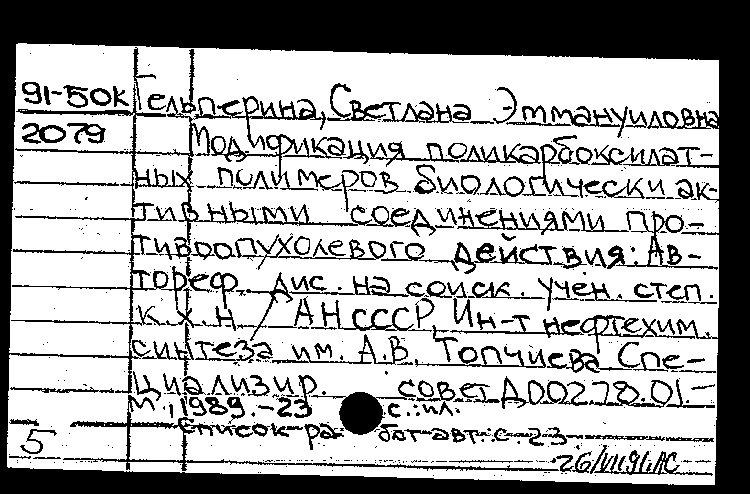 91-50к Гельперина, Светлана Эммануиловна
2079 Модификация поликарбоксилат-
ных полимеров биологически ак-
тивными соединениями про-
тивоопухолевого действия: Ав-
тореф. дис. на соиск. учен. степ.
к.х.н / АН СССР, Ин-т нефтехим.
синтеза им. А.В. Топчиева Спе-
циализир. совет Д002.78.01.-
М., 1989.-23 с.:ил.
Список работ авт.: с 23.
5